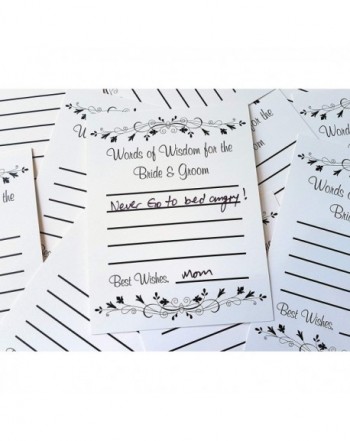 Words of Wisdom for the
Bride & Groom
Never Go to bed angry!
Best Wishes, Mom
the
Words of
Bride
Best Wishes,